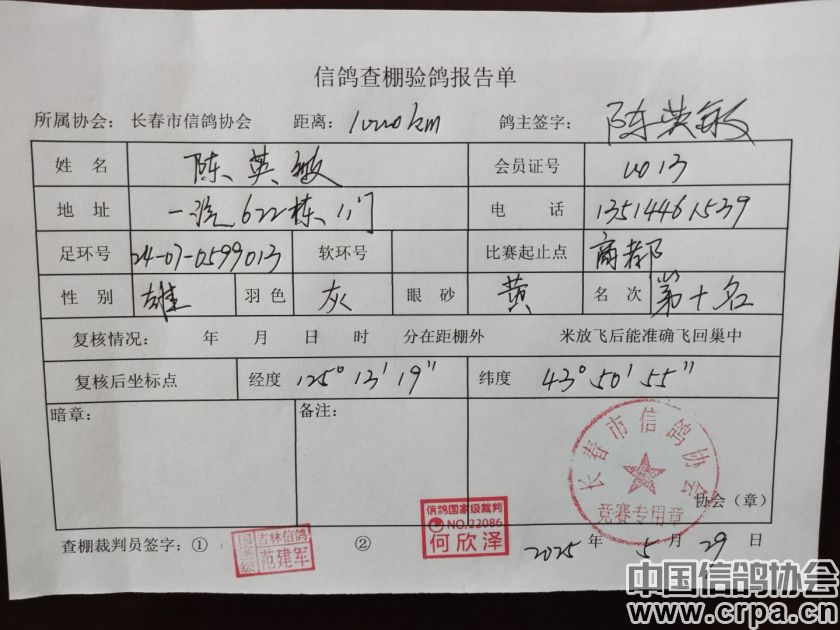 信鸽查棚验鸽报告单
所属协会： 长春市信鸽协会 距离： 1000km 鸽主签字： 陈英敏
姓 名 陈英敏 会员证号 0013
地 址 一汽622栋 11门 电 话 13514461539
足环号 24-07-0599013 软环号 比赛起止点 商都
性 别 雄 羽 色 灰 眼 砂 黄 名 次 第十名
复核情况： 年 月 日 时 分在距棚外 米放飞后能准确飞回巢中
复核后坐标点 经度 125° 13′ 19″ 纬度 43° 50′ 55″
暗章： 备注：
长春市信鸽协会
竞赛专用章
协会（章）
查棚裁判员签字：① 国家级 吉林信鸽 范建军 ② 信鸽国家级裁判 NO.22086 何欣泽
2025 年 5 月 29 日
中国信鸽协会
www.crpa.cn